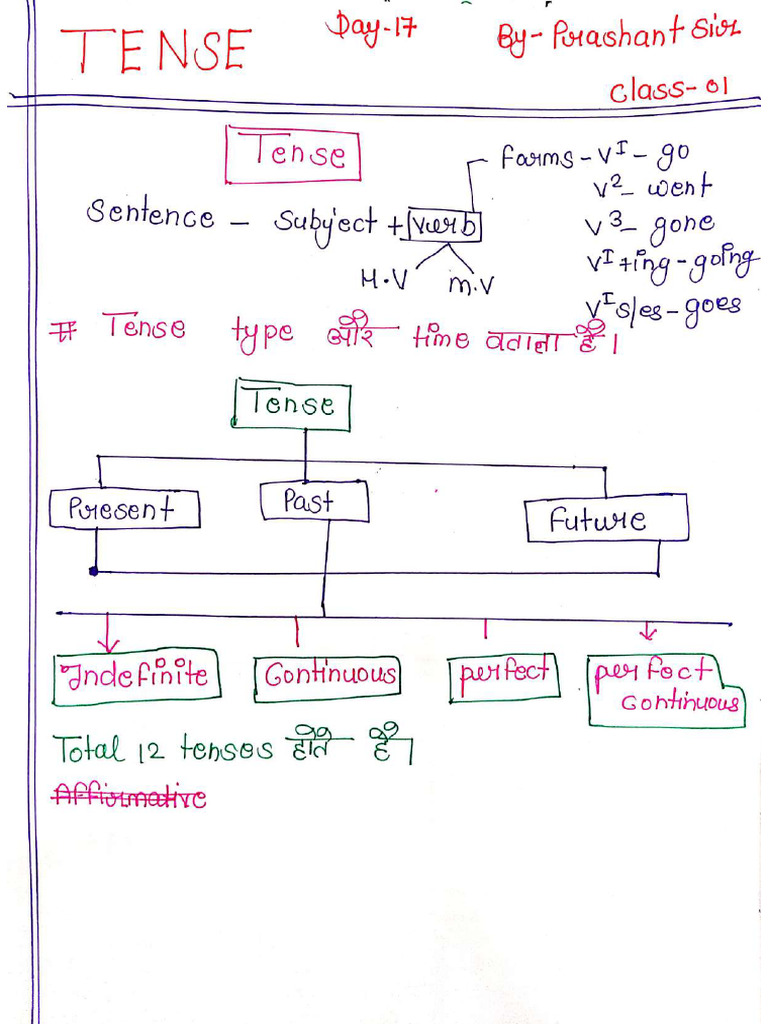 TENSE
Day-17
By- Prashant Sir
Class-01
Tense
forms - V1 - go
V2 - went
Sentence - Subject + Verb
V3 - gone
V1+ing - going
H.V  m.V
V1 s/es - goes
# Tense type और time बताता है।
Tense
Present
Past
Future
Indefinite
Continuous
perfect
perfect
Continuous
Total 12 tenses होते है।
Affirmative